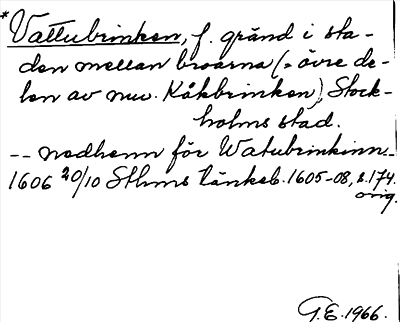 *Vattubrinken, f. gränd i sta-
den mellan broarna (= övre de-
len av nuv. Kåkbrinken), Stock-
holms stad.
-- nedhenn för Watubrinkinn.
1606 20/10 Sthms tänkeb. 1605-08, s. 174.
orig.
G.E. 1966.